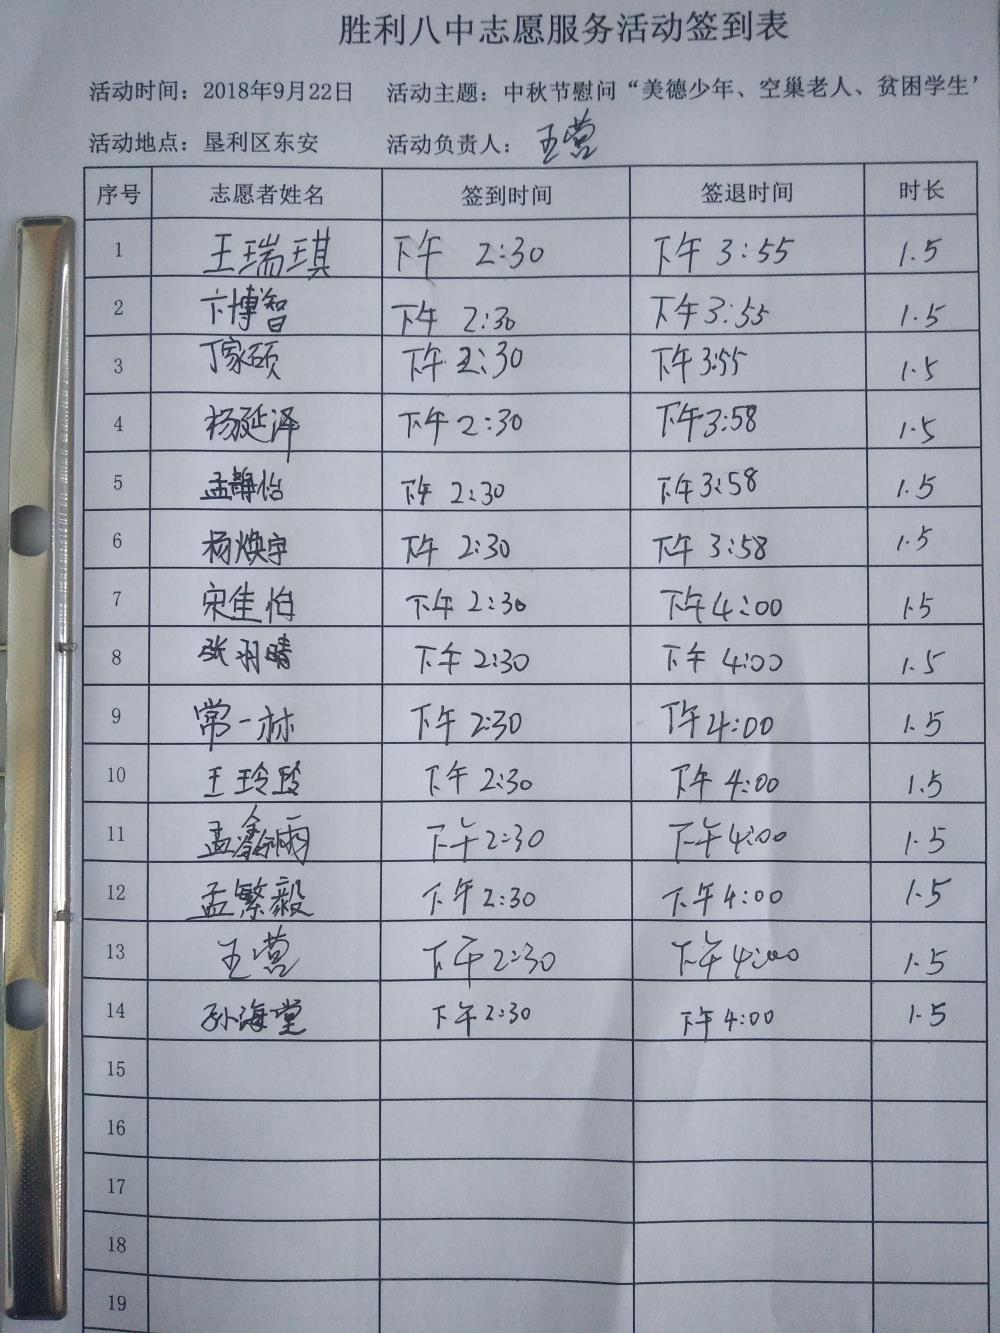 胜利八中志愿服务活动签到表
活动时间：2018年9月22日 活动主题：中秋节慰问“美德少年、空巢老人、贫困学生’
活动地点：垦利区东安 活动负责人：王营
序号 志愿者姓名 签到时间 签退时间 时长
1 王瑞琪 下午 2:30 下午 3:55 1.5
2 卞博智 下午 2:30 下午 3:55 1.5
3 丁家硕 下午 2:30 下午 3:55 1.5
4 杨延泽 下午 2:30 下午 3:58 1.5
5 孟静怡 下午 2:30 下午 3:58 1.5
6 杨焕宇 下午 2:30 下午 3:58 1.5
7 宋佳怡 下午 2:30 下午 4:00 1.5
8 张羽晴 下午 2:30 下午 4:00 1.5
9 常一林 下午 2:30 下午 4:00 1.5
10 王玲 下午 2:30 下午 4:00 1.5
11 孟鑫雨 下午 2:30 下午 4:00 1.5
12 孟繁毅 下午 2:30 下午 4:00 1.5
13 王营 下午 2:30 下午 4:00 1.5
14 孙海堂 下午 2:30 下午 4:00 1.5
15
16
17
18
19